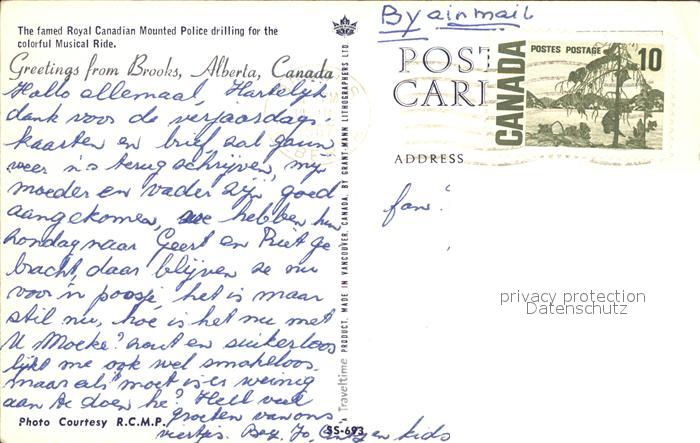 The famed Royal Canadian Mounted Police drilling for the
colorful Musical Ride.
Greetings from Brooks, Alberta, Canada
Hallo allemaal, Hartelijk
dank voor de verjaardags-
kaarten en brief, zal gauw
weer n's terug schrijven, mijn
moeder en vader zijn goed
aangekomen, we hebben hun
zondag naar Geert en Piet ge
bracht, daar blijven se nu
voor 'n poosje, het is maar
stil nu, hoe is het nu met
U Moeke? zout en suikerloos
lijkt me ook wel smakeloos.
maar als 't moet is er weinig
aan te doen hè? Heel veel
groeten van ons
viertjes. Bey, Jo, en kids
Photo Courtesy R.C.M.P.
SS-693
A Traveltime PRODUCT. MADE IN VANCOUVER, CANADA, BY GRANT-MANN LITHOGRAPHERS LTD.
By airmail
POST
CAR
CANADA
POSTES POSTAGE
10
ADDRESS
fam:
privacy protection
Datenschutz